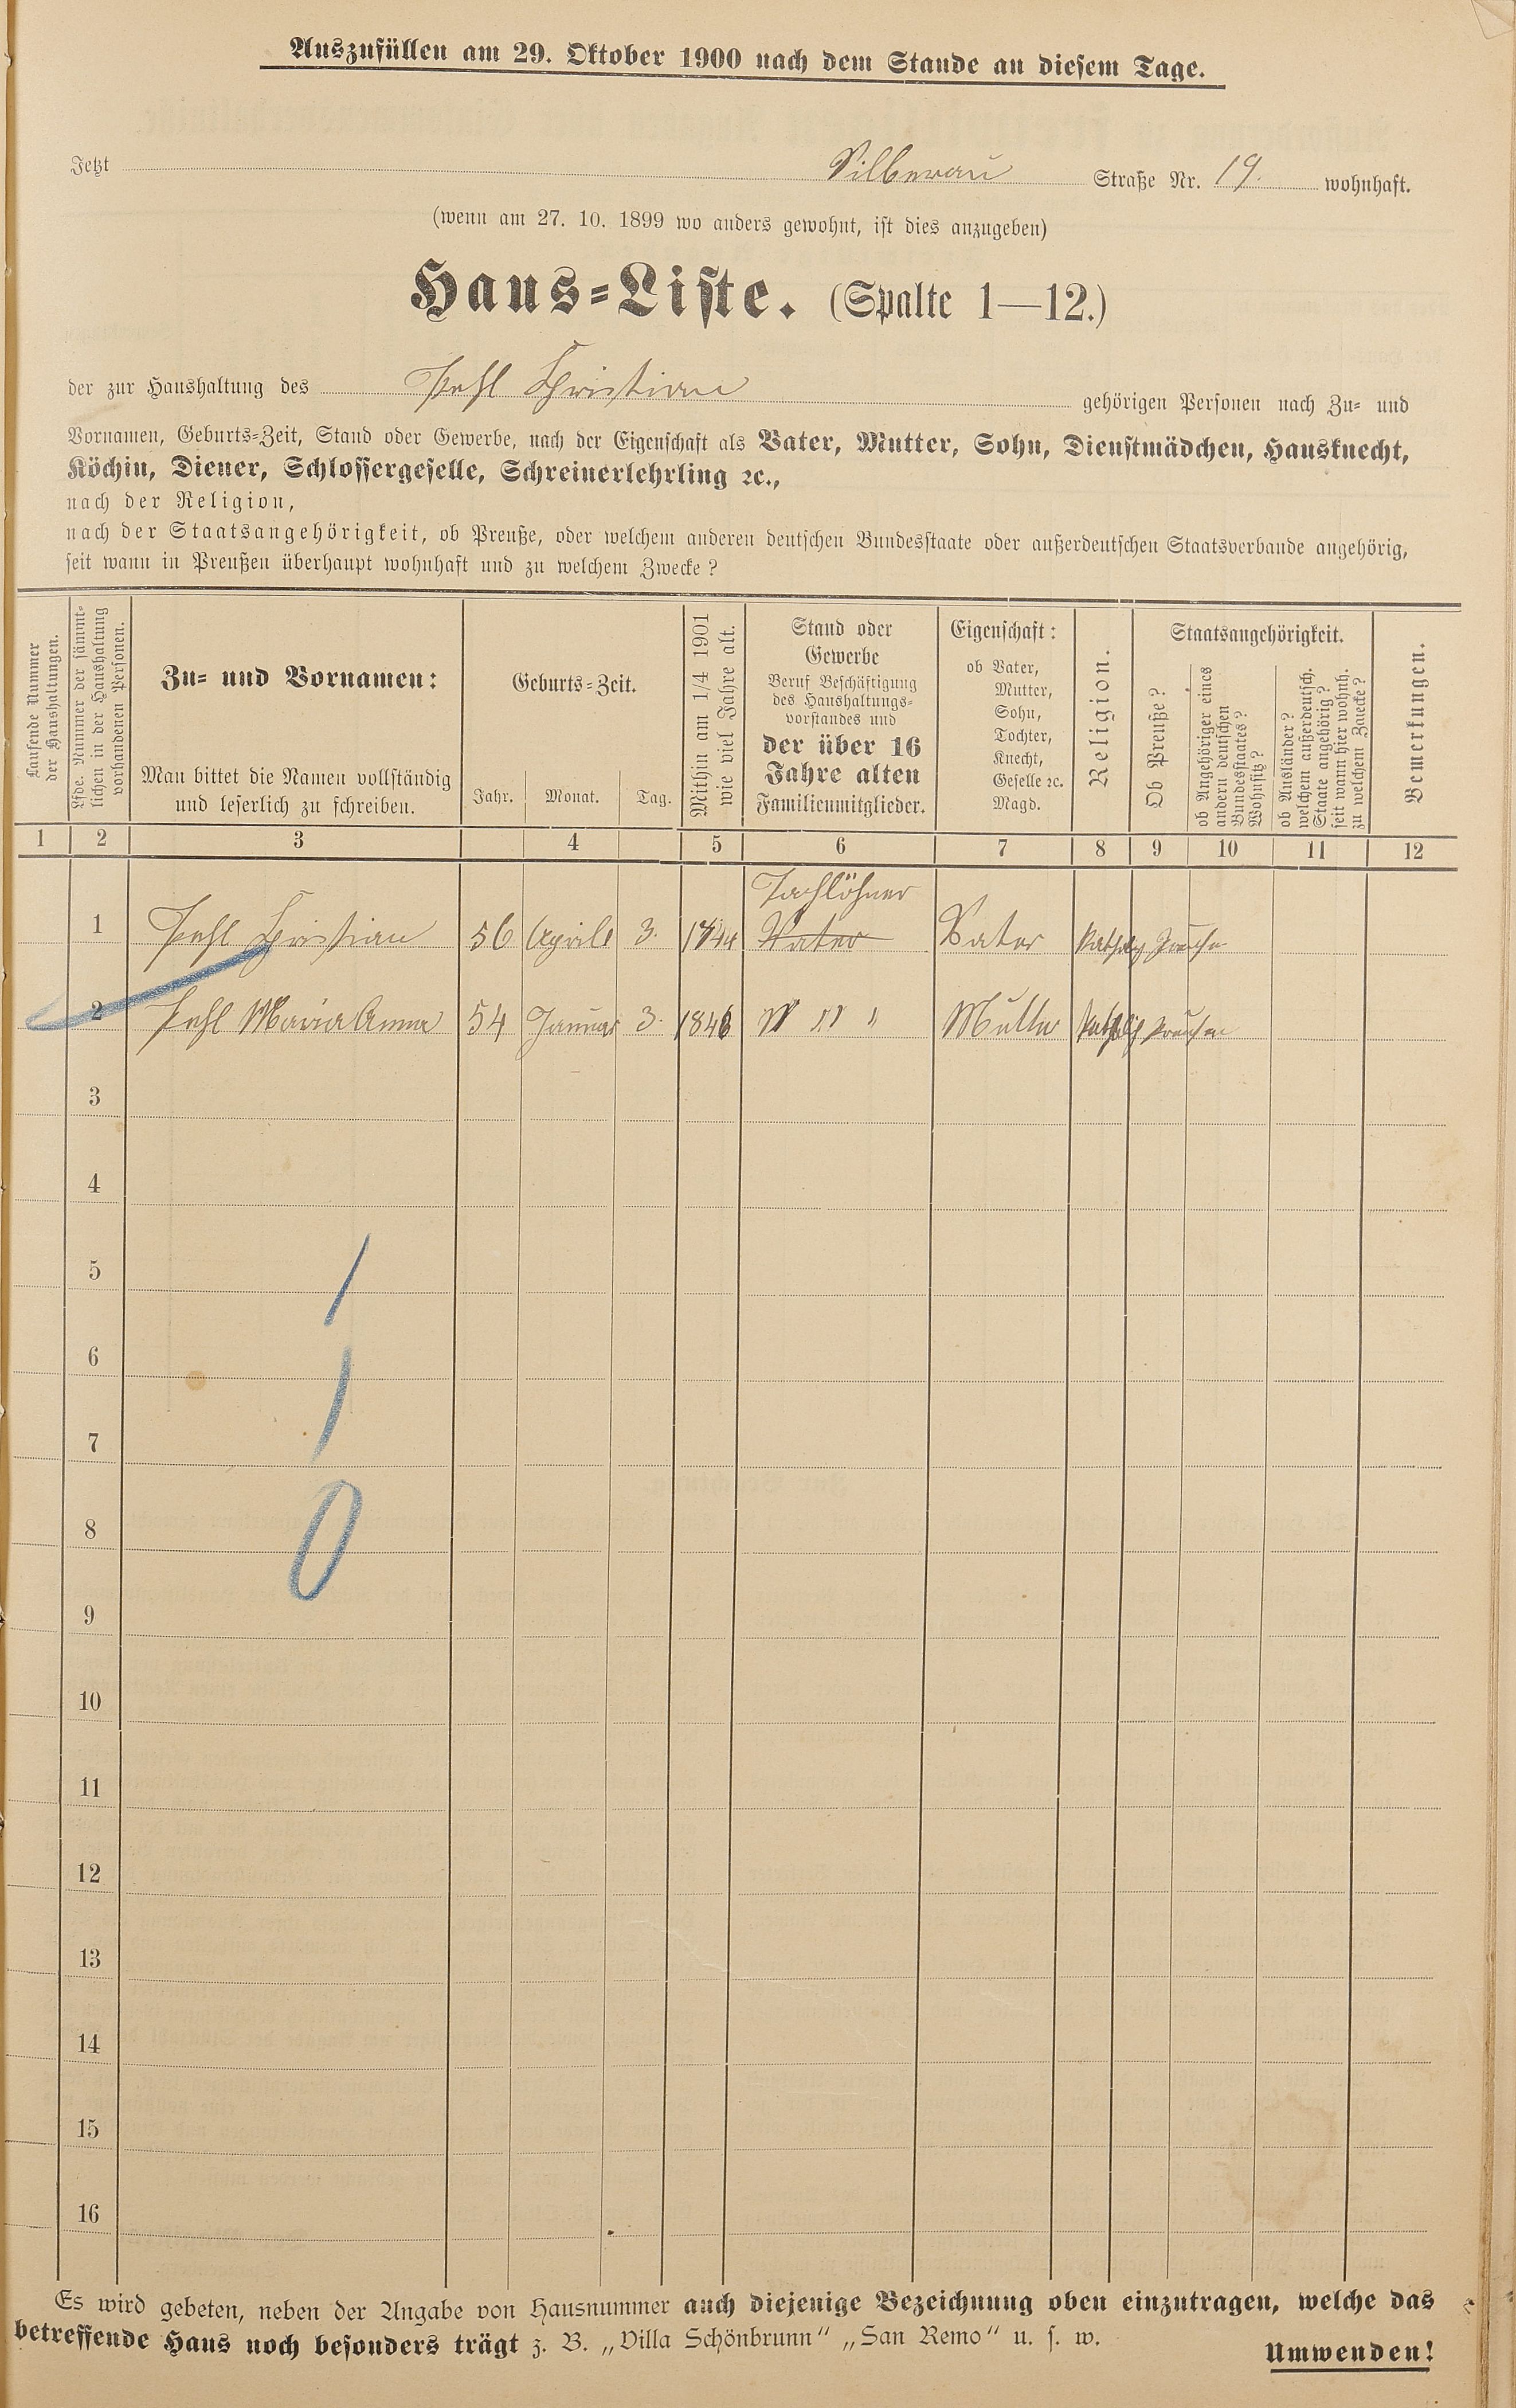 Auszufüllen am 29. Oktober 1900 nach dem Stande an diesem Tage.
Jetzt Silberau Straße Nr. 19. wohnhaft.
(wenn am 27. 10. 1899 wo anders gewohnt, ist dies anzugeben)
Haus-Liste. (Spalte 1—12.)
der zur Haushaltung des Pehl Christian gehörigen Personen nach Zu- und
Vornamen, Geburts-Zeit, Stand oder Gewerbe, nach der Eigenschaft als Vater, Mutter, Sohn, Dienstmädchen, Hausknecht,
Köchin, Diener, Schlossergeselle, Schreinerlehrling ꝛc.,
nach der Religion,
nach der Staatsangehörigkeit, ob Preuße, oder welchem anderen deutschen Bundesstaate oder außerdeutschen Staatsverbande angehörig,
seit wann in Preußen überhaupt wohnhaft und zu welchem Zwecke?
Laufende Nummer
der Haushaltungen.
Lfde. Nummer der sämmt-
lichen in der Haushaltung
vorhandenen Personen.
Zu- und Vornamen:
Man bittet die Namen vollständig
und leserlich zu schreiben.
Geburts-Zeit.
Jahr. Monat. Tag.
Mithin am 1/4 1901
wie viel Jahre alt.
Stand oder
Gewerbe
Beruf Beschäftigung
des Haushaltungs-
vorstandes und
der über 16
Jahre alten
Familienmitglieder.
Eigenschaft:
ob Vater,
Mutter,
Sohn,
Tochter,
Knecht,
Geselle ꝛc.
Magd.
Religion.
Staatsangehörigkeit.
Ob Preuße?
ob Angehöriger eines
andern deutschen
Bundesstaates?
Wohnsitz?
ob Ausländer?
welchem außerdeutsch.
Staate angehörig?
seit wann hier wohnh.
zu welchem Zwecke?
Bemerkungen.
1 2 3 4 5 6 7 8 9 10 11 12
Taglöhner
1 Pehl Christian 56 April 3. 1844 Vater Vater
2 Pehl Maria Anna 54 Januar 3. 1846 " " " Mutter
3
4
5
6
7
8
9
10
11
12
13
14
15
16
Es wird gebeten, neben der Angabe von Hausnummer auch diejenige Bezeichnung oben einzutragen, welche das
betreffende Haus noch besonders trägt z. B. „Villa Schönbrunn“ „San Remo“ u. s. w.
Umwenden!